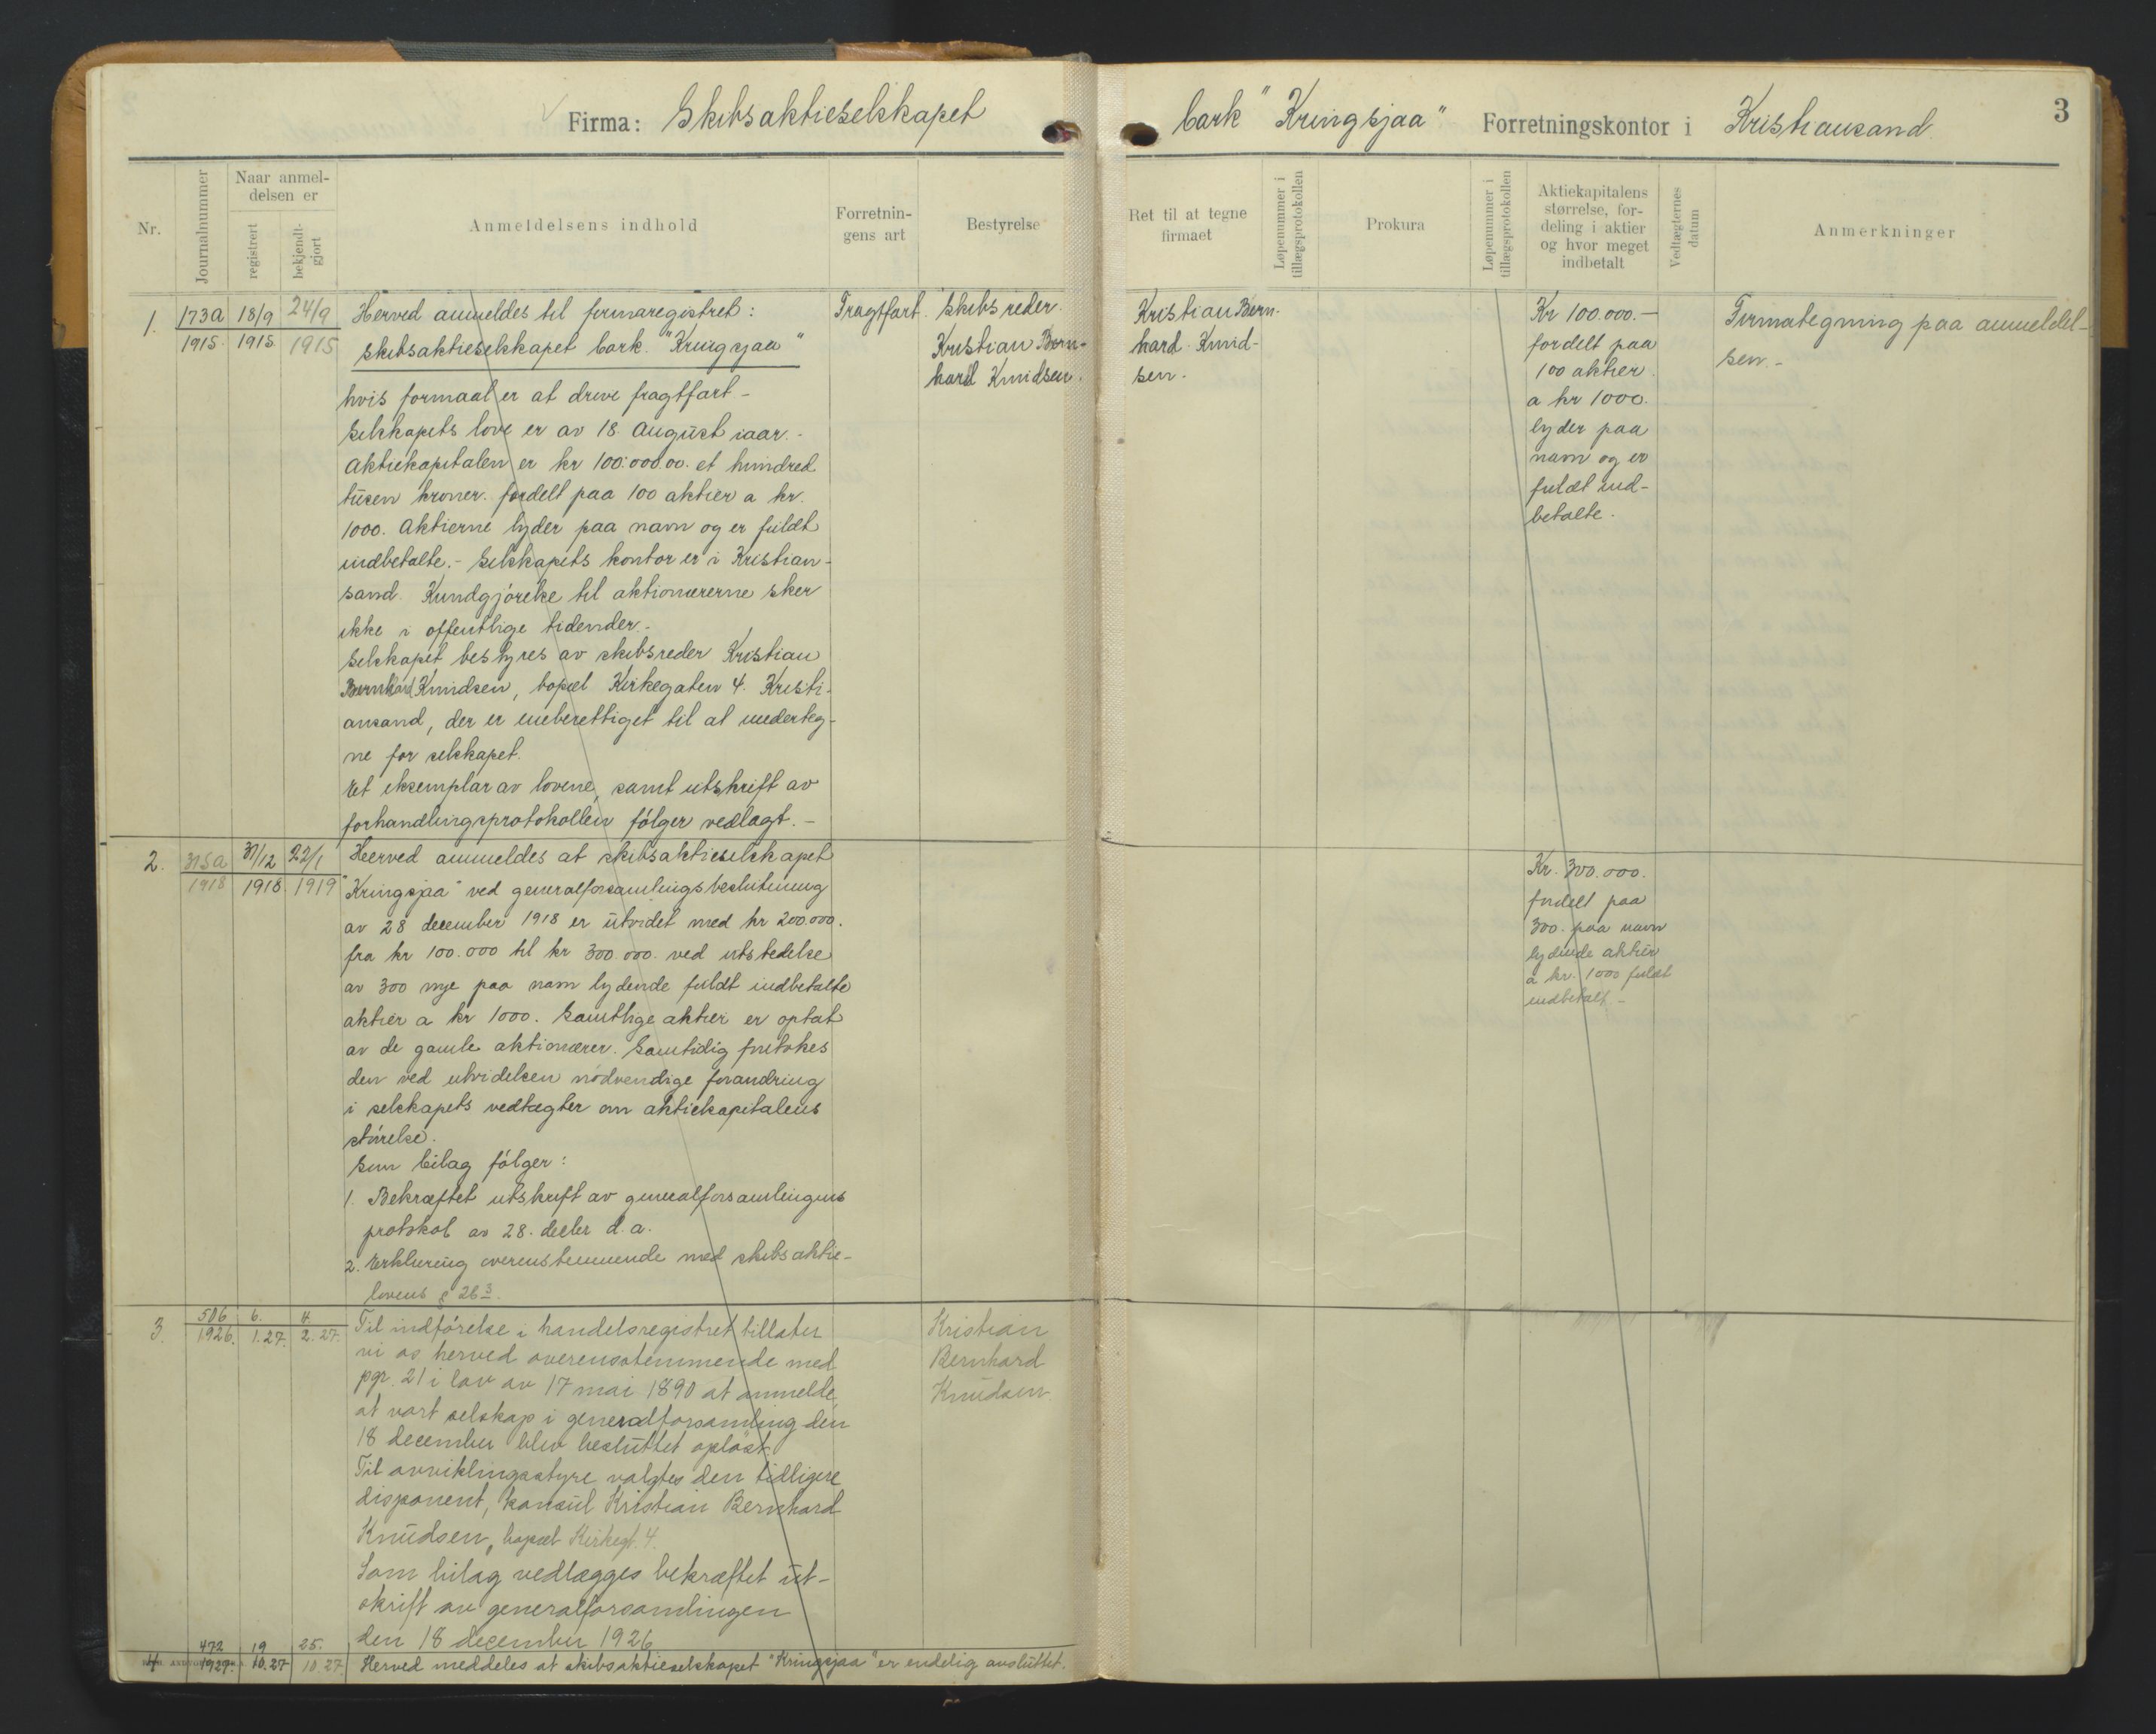 Firma: Skibsaktieselskapet
bark "Kringsjaa" Forretningskontor i Kristiansand.
3
Nr.
Journalnummer
Naar anmel-
delsen er
registrert
bekjendt-
gjort
Anmeldelsens indhold
Forretnin-
gens art
Bestyrelse
Ret til at tegne
firmaet
Løpenummer i
tillægsprotokollen
Prokura
Løpenummer i
tillægsprotokollen
Aktiekapitalens
størrelse, for-
deling i aktier
og hvor meget
indbetalt
Vedtægternes
datum
Anmerkninger
1.
173a
1915
18/9
1915
24/9
1915
Herved anmeldes til firmaregistret:
skibsaktieselskapet bark "Kringsjaa"
hvis formaal er at drive fragtfart.-
Selskapets love er av 18. august iaar.-
Aktiekapitalen er kr 100.000.00. et hundred
tusen kroner. fordelt paa 100 aktier a kr.
1000. Aktierne lyder paa navn og er fuldt
indbetalte.- Selskapets kontor er i Kristian-
sand. Kundgjörelse til aktionærerne sker
ikke i offentlige tidender.-
Selskapet bestyres av skibsreder Kristian
Bernhard Knudsen, bopæl Kirkegaten 4. Kristi-
ansand, der er eneberettiget til at underteg-
ne for selskapet.
Et eksemplar av lovene, samt utskrift av
forhandlingsprotokollen fölger vedlagt.-
Fragtfart.
Skibsreder
Kristian Bern-
hard Knudsen.
Kristian Bern-
hard Knud-
sen.
Kr 100.000.-
fordelt paa
100 aktier
a kr 1000.
lyder paa
navn og er
fuldt ind-
betalte.
Firmategning paa anmeldel-
sen.-
2.
315a
1918
31/12
1918
22/1
1919
Herved anmeldes at skibsaktieselskapet
"Kringsjaa" ved generalforsamlingsbeslutning
av 28 december 1918 er utvidet med kr 200.000.
fra kr 100.000 til kr 300.000. ved utstedelse
av 300 nye paa navn lydende fuldt indbetalte
aktier a kr 1000. Samtlige aktier er optat
av de gamle aktionærer. Samtidig foretokes
den ved utvidelsen nödvendige forandring
i selskapets vedtægter om aktiekapitalens
störelse.
Som bilag fölger:
1. Bekræftet utskrift av generalforsamlingens
protokol av 28. decbr d.a.
2. Erklæring overenstemmende med skibsaktie-
lovens § 26 3.
Kr. 300.000.
fordelt paa
300. paa navn
lydende aktier
a kr. 1000 fuldt
indbetalt.-
3.
506
1926.
6.
1.27.
4.
2.27.
Til indförelse i handelsregistret tillater
vi os herved overensstemmende med
pgr. 21 i lov av 17 mai 1890 at anmelde,
at vort selskap i generalforsamling den
18 december blev besluttet oplöst.
Til avviklingsstyre valgtes den tidligere
disponent, konsul Kristian Bernhard
Knudsen, bopæl Kirkegt. 4.
Som bilag vedlægges bekræftet ut-
skrift av generalforsamlingen
den 18 december 1926
Kristian
Bernhard
Knudsen
4
472
1927.
19
10.27
25.
10.27.
Herved meddeles at skibsaktieselskapet "Kringsjaa" er endelig avsluttet.